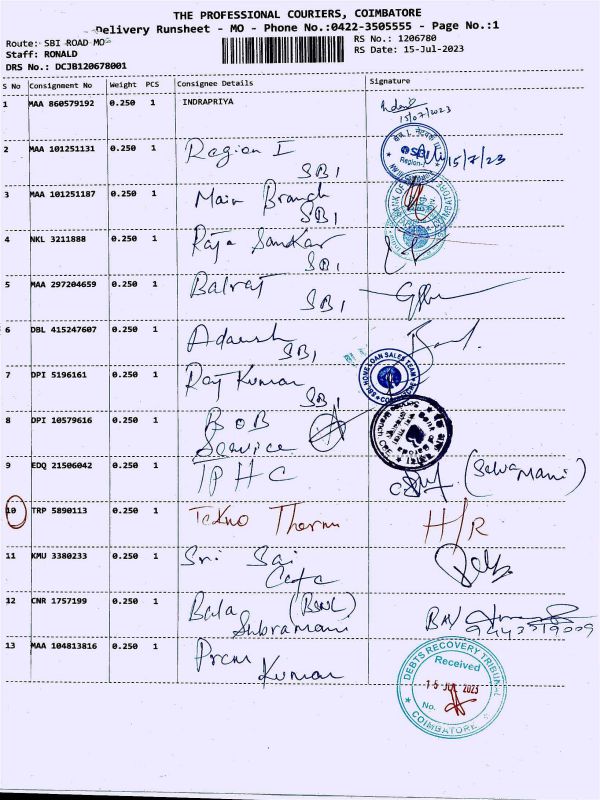 THE PROFESSIONAL COURIERS, COIMBATORE
Delivery Runsheet - MO - Phone No.:0422-3505555 - Page No.:1
Route: SBI ROAD MO
RS No.: 1206780
Staff: RONALD
RS Date: 15-Jul-2023
DRS No.: DCJB120678001
S No Consignment No Weight PCS Consignee Details Signature
1 MAA 860579192 0.250 1 INDRAPRIYA
15/07/2023
2 MAA 101251131 0.250 1 Region I
SBI
SBI 15/7/23
Region-I
3 MAA 101251187 0.250 1 Main Branch
SBI
4 NKL 3211888 0.250 1 Raja Sankar
SBI
5 MAA 297204659 0.250 1 Balraj
SBI
6 DBL 415247607 0.250 1 Adarsh
SBI
7 DPI 5196161 0.250 1 Raj Kumar
SBI
SBI HOME LOAN SALES TEAM
8 DPI 10579616 0.250 1 BOB
Service
9 EDQ 21506042 0.250 1 TPHC (Selvamani)
10 TRP 5890113 0.250 1 Tekno Therm H/R
11 KMU 3380233 0.250 1 Sri Sai
Cafe
12 CNR 1757199 0.250 1 Bala (BSNL)
Subramani
13 MAA 104813816 0.250 1 Prem
Kumar
DEBTS RECOVERY TRIBUNAL
Received
15 JUL 2023
No.
COIMBATORE